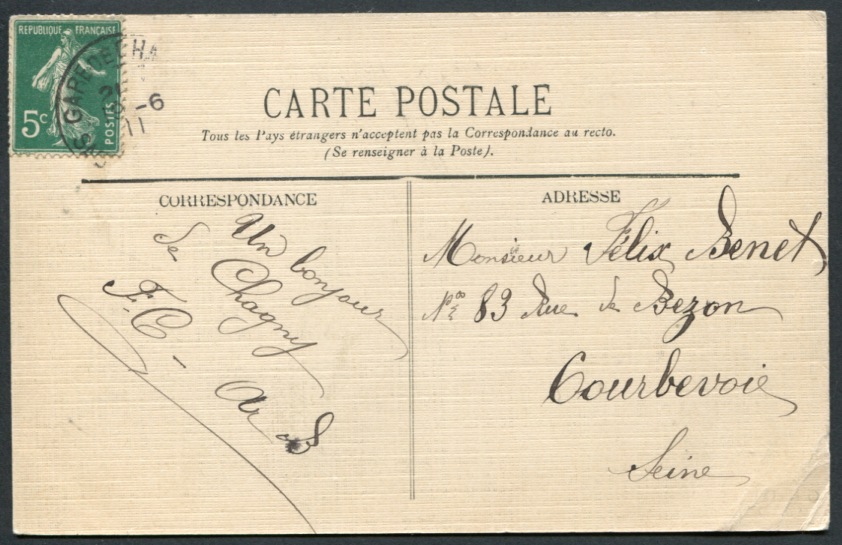 REPUBLIQUE FRANÇAISE
5c
POSTES
GARE DE CHA
21
-6
11
CARTE POSTALE
Tous les Pays étrangers n'acceptent pas la Correspondance au recto.
(Se renseigner à la Poste).
CORRESPONDANCE
Un bonjour
de Chagny
F. C –
ADRESSE
Monsieur Félix Benet
83 Rue de Bezon
Courbevoie
Seine